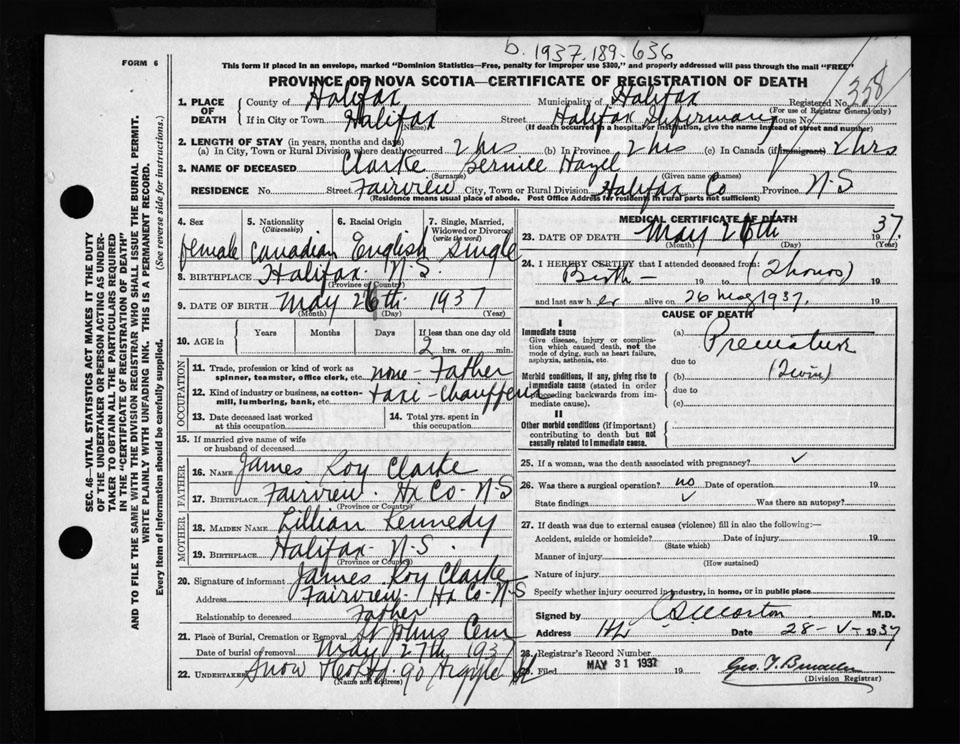 b. 1937.189.636
FORM 6
This form if placed in an envelope, marked "Dominion Statistics—Free, penalty for improper use $300," and properly addressed will pass through the mail "FREE"
PROVINCE OF NOVA SCOTIA—CERTIFICATE OF REGISTRATION OF DEATH
358
1. PLACE OF DEATH
County of Halifax Municipality of Halifax Registered No.
(For use of Registrar General only)
If in City or Town Halifax Street Halifax Infirmary House No.
(Name) (If death occurred in a hospital or institution, give the name instead of street and number)
2. LENGTH OF STAY (in years, months and days)
(a) In City, Town or Rural Division where death occurred 2 hrs (b) In Province 2 hrs (c) In Canada (if immigrant) 2 hrs
3. NAME OF DECEASED Clarke Bernice Hazel
(Surname) (Given name or names)
RESIDENCE No. Street Fairview City, Town or Rural Division Halifax Co Province N-S
(Residence means usual place of abode. Post Office Address for residents in rural parts not sufficient)
4. Sex
female
5. Nationality
(Citizenship)
Canadian
6. Racial Origin
English
7. Single, Married, Widowed or Divorced
(write the word)
Single
8. BIRTHPLACE Halifax. N.S.
(Province or Country)
9. DATE OF BIRTH May 26th 1937
(Month) (Day) (Year)
10. AGE in
Years Months Days If less than one day old
2 hrs. or min.
OCCUPATION
11. Trade, profession or kind of work as spinner, teamster, office clerk, etc. none - Father
12. Kind of industry or business, as cotton-mill, lumbering, bank, etc. taxi - Chauffeur
13. Date deceased last worked at this occupation
14. Total yrs. spent in this occupation
15. If married give name of wife or husband of deceased
FATHER
16. NAME James Roy Clarke
17. BIRTHPLACE Fairview. Hx Co- N-S
(Province or Country)
MOTHER
18. MAIDEN NAME Lillian Kennedy
19. BIRTHPLACE Halifax- N.S.
(Province or Country)
20. Signature of informant James Roy Clarke
Address Fairview- Hx Co- N-S
Relationship to deceased Father
21. Place of Burial, Cremation or Removal St Johns Cem
Date of burial or removal May 27th 1937
22. UNDERTAKER Snow 90 Argyle St
(Name and address)
MEDICAL CERTIFICATE OF DEATH
23. DATE OF DEATH May 26th 1937.
(Month) (Day) (Year)
24. I HEREBY CERTIFY that I attended deceased from
Birth - 19 to (2 hours) 19
and last saw her alive on 26 May 1937. 19
CAUSE OF DEATH
I
Immediate cause
Give disease, injury or complication which caused death, not the mode of dying, such as heart failure, asphyxia, asthenia, etc.
(a) Premature
due to
Morbid conditions, if any, giving rise to immediate cause (stated in order proceeding backwards from immediate cause).
(b) (Twin)
due to
(c)
II
Other morbid conditions (if important) contributing to death but not causally related to immediate cause.
25. If a woman, was the death associated with pregnancy? ✓
26. Was there a surgical operation? no Date of operation 19
State findings ✓ Was there an autopsy?
27. If death was due to external causes (violence) fill in also the following:—
Accident, suicide or homicide? Date of injury 19
(State which)
Manner of injury
(How sustained)
Nature of injury
Specify whether injury occurred in industry, in home, or in public place
Signed by M.D.
Address Hx Date 28-V-1937
28. Registrar's Record Number
Filed MAY 31 1937 19
Geo. T.
(Division Registrar)
SEC. 46—VITAL STATISTICS ACT MAKES IT THE DUTY
OF THE UNDERTAKER OR PERSON ACTING AS UNDER-
TAKER TO OBTAIN ALL THE PARTICULARS REQUIRED
IN THE "CERTIFICATE OF REGISTRATION OF DEATH"
AND TO FILE THE SAME WITH THE DIVISION REGISTRAR WHO SHALL ISSUE THE BURIAL PERMIT.
WRITE PLAINLY WITH UNFADING INK. THIS IS A PERMANENT RECORD.
Every Item of Information should be carefully supplied. (See reverse side for instructions.)